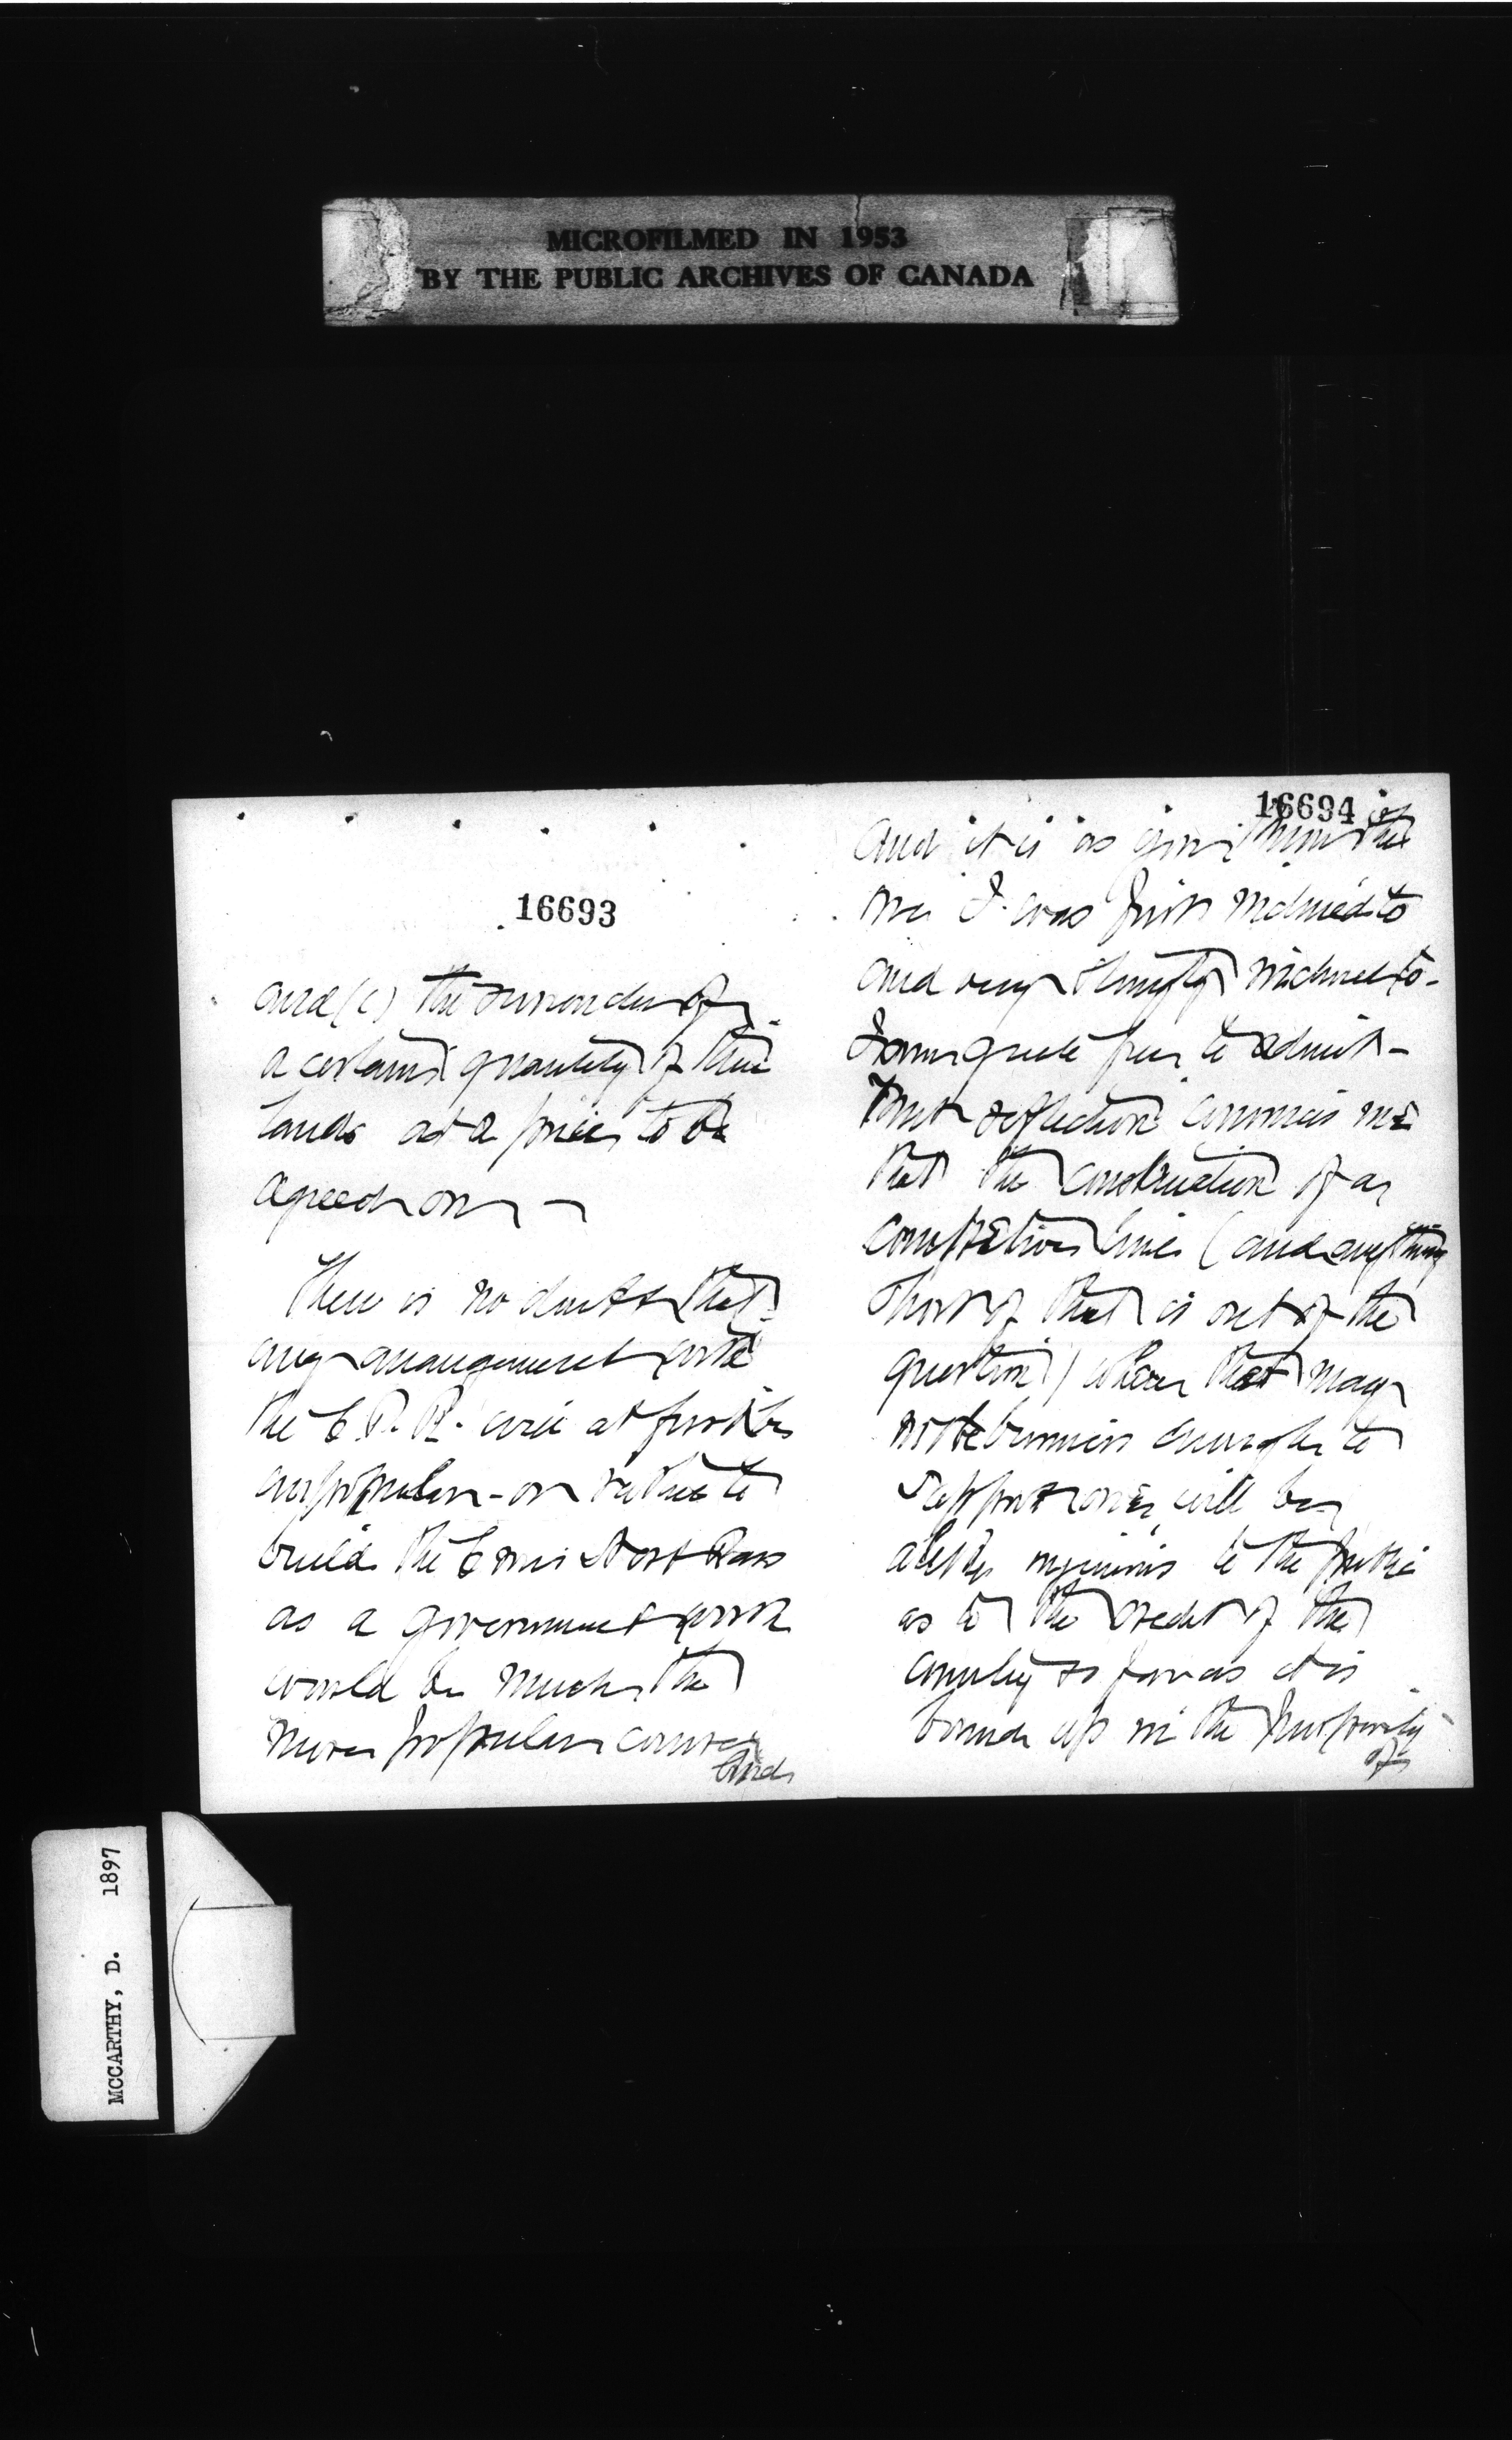 MICROFILMED IN 1953
BY THE PUBLIC ARCHIVES OF CANADA
16693
and (c) the surrender of
a certain quantity of their
lands at a price to be
agreed on —
There is no doubt that
any arrangement with
the C.P.R. will at first be
unpopular - or rather to
build the Crows Nest Pass
as a government work
would be much the
more popular course
And
16694
And it is as you know the
one I was first inclined to
and very strongly inclined to -
I am quite free to admit -
But reflection convinces me
that the construction of a
competitive line (and anything
short of that is out of the
question) where there may
not be business enough to
support one, will be
injurious to the public
as to the credit of the
country so far as it is
bound up in the prosperity
of
MCCARTHY, D. 1897